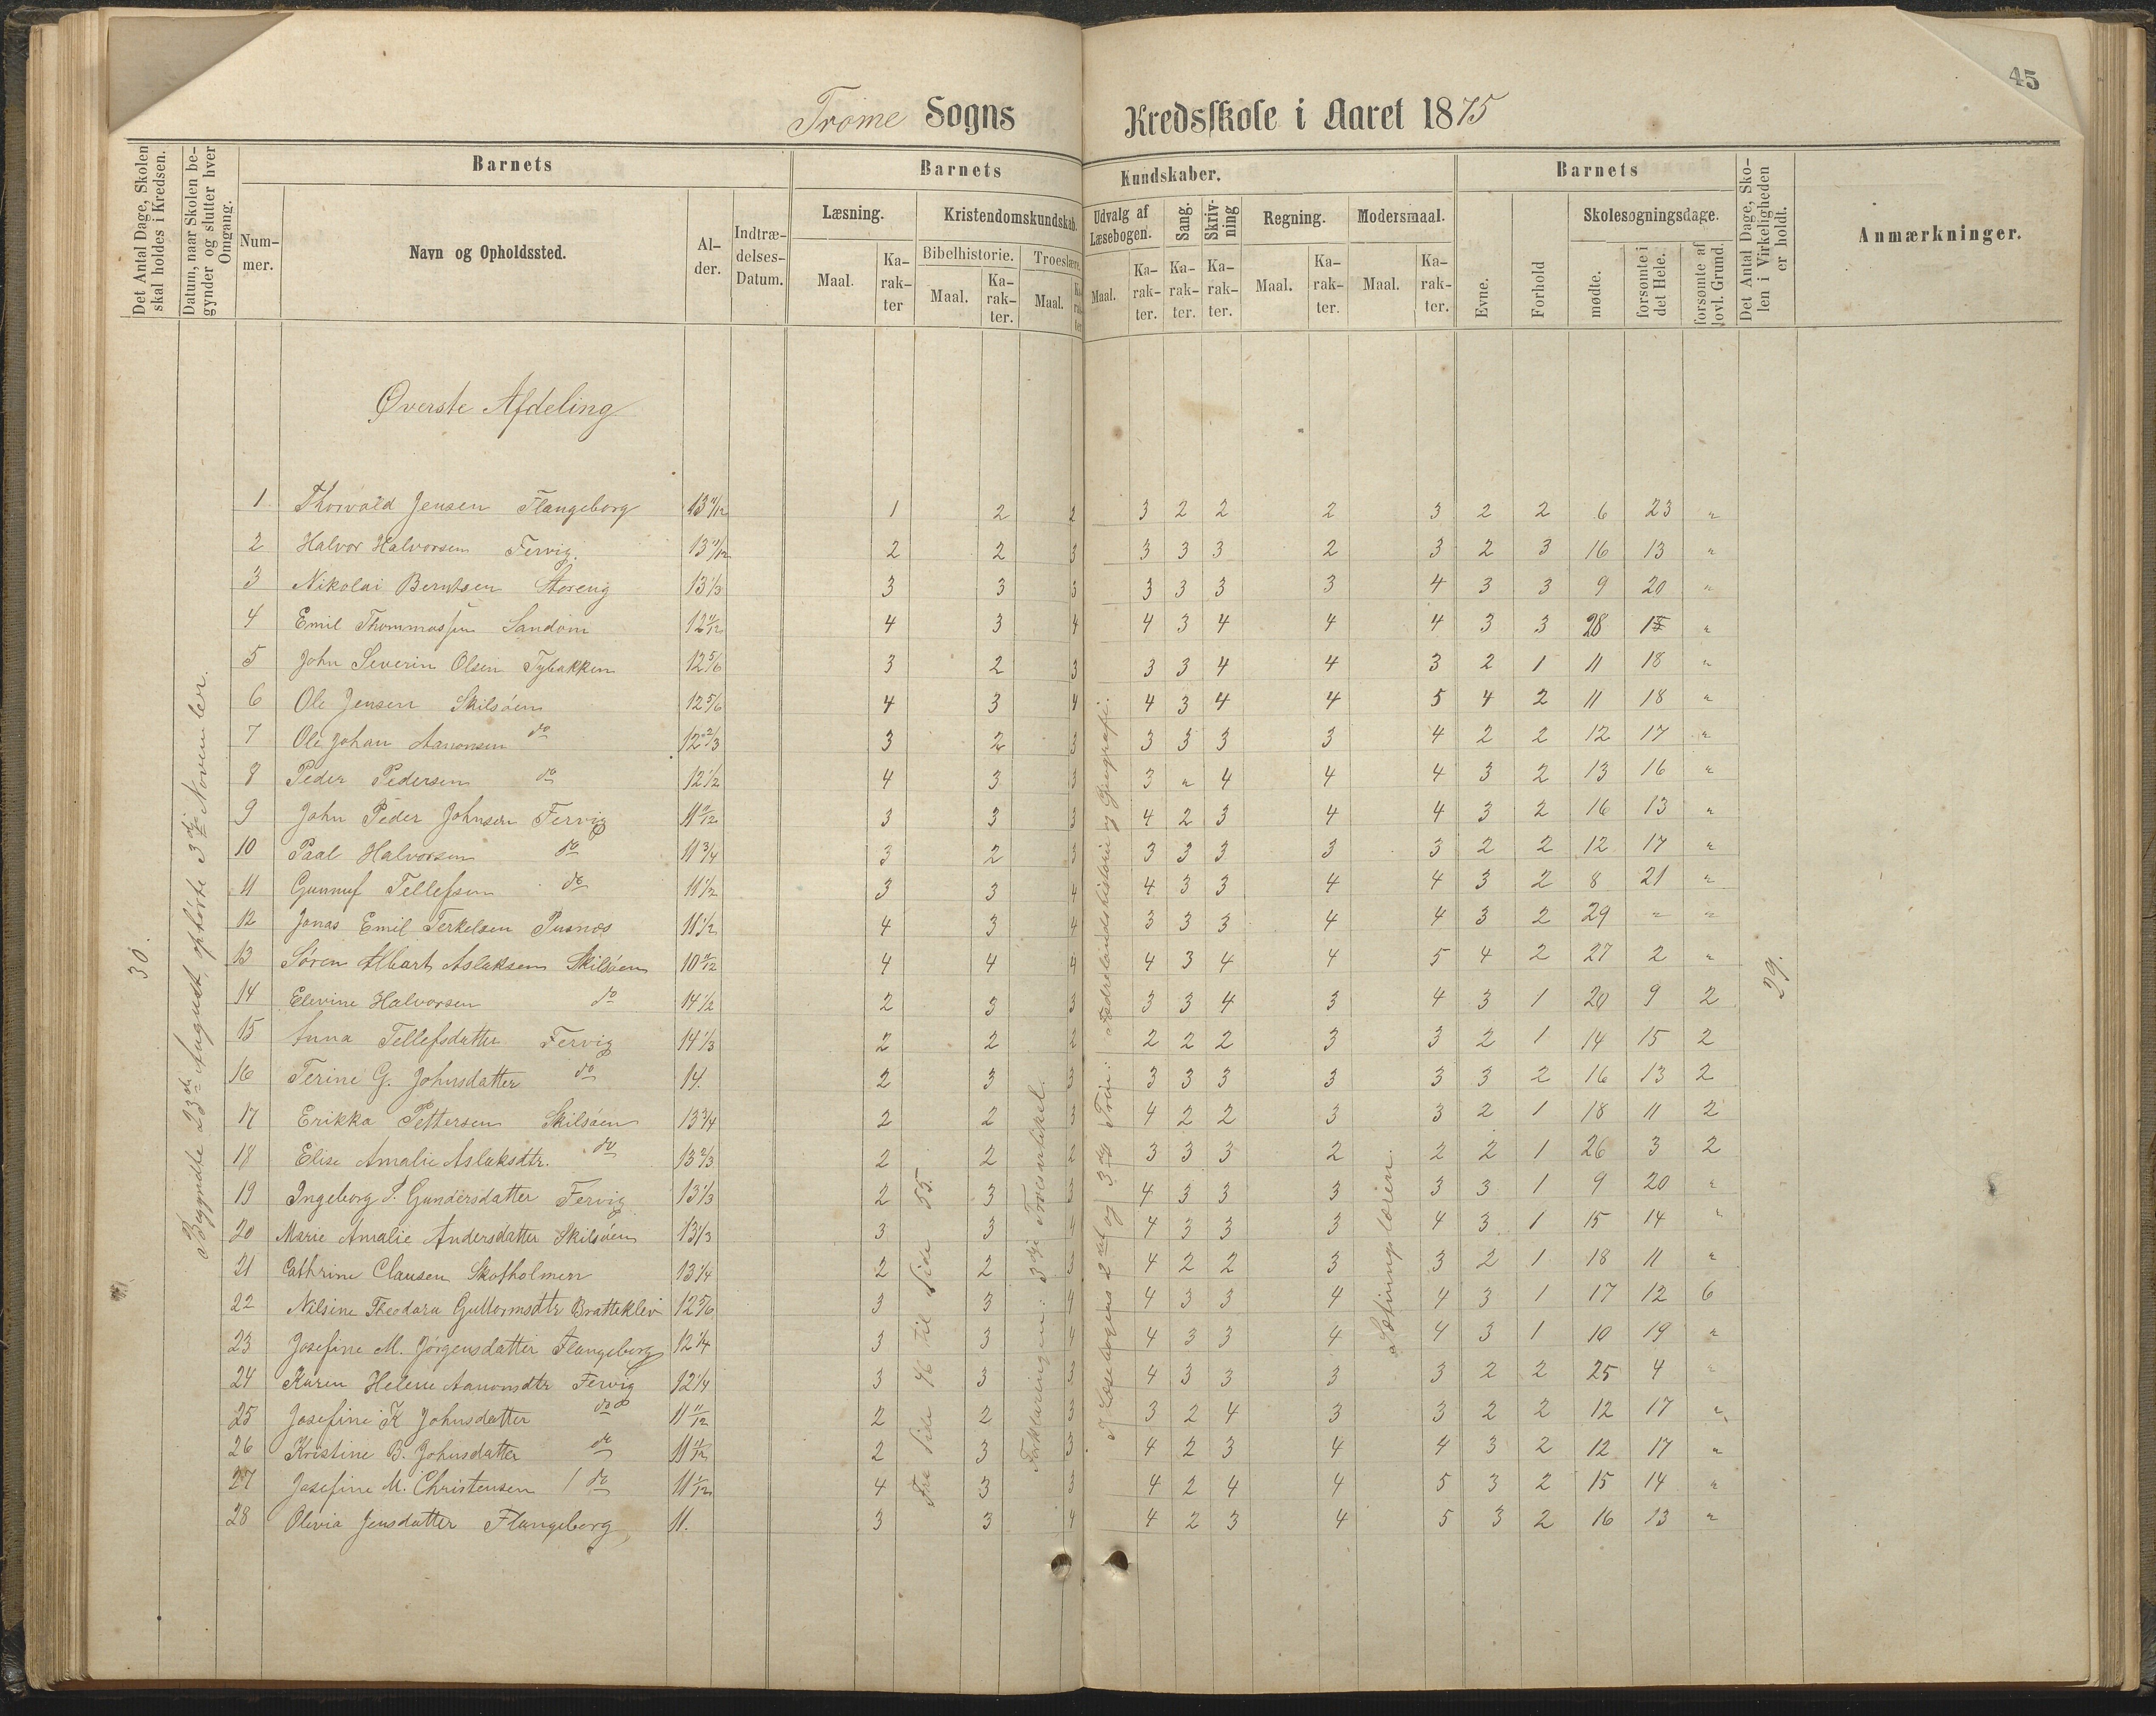 45
Trømø Sogns Kredsskole i Aaret 1875
Det Antal Dage, Skolen skal holdes i Kredsen.
Datum, naar Skolen begynder og slutter hver Omgang.
Barnets
Nummer.
Navn og Opholdssted.
Alder.
Indtrædelses-Datum.
Barnets Kundskaber.
Læsning.
Maal.
Karakter
Kristendomskundskab.
Bibelhistorie.
Maal.
Karakter.
Troeslære.
Maal.
Karakter
Udvalg af Læsebogen.
Maal.
Karakter.
Sang.
Karakter.
Skrivning
Karakter.
Regning.
Maal.
Karakter.
Modersmaal.
Maal.
Karakter.
Barnets
Evne.
Forhold
Skolesøgningsdage.
mødte.
forsømte i det Hele.
forsømte af lovl. Grund.
Det Antal Dage, Skolen i Virkeligheden er holdt.
Anmærkninger.
Øverste Afdeling
30.
Begyndte 23de August, ophørte 3die November.
Fra Side 46 til Side 55.
Forklaringen: 3die Troesartikel.
I Læsebogens 2det og 3die Trin: Fædrelandshistorie og Geografi.
Sætningslæren.
29.
1 Thorvald Jensen Flangeborg 13 11/12 1 2 2 3 2 2 2 3 2 2 6 23 "
2 Halvor Halvorsen Fervig. 13 11/12 2 2 3 3 3 3 2 3 2 3 16 13 "
3 Nikolai Berntsen Storeng 13 1/3 3 3 3 3 3 3 3 4 3 3 9 20 "
4 Emil Thommassen Sandom 12 11/12 4 3 4 4 3 4 4 4 3 3 28 1 "
5 John Severin Olsen Tybakken 12 5/6 3 2 3 3 3 4 4 3 2 1 11 18 "
6 Ole Jensen Skilsøen 12 5/6 4 3 4 4 3 4 4 5 4 2 11 18 "
7 Ole Johan Aanonsen do 12 2/3 3 2 3 3 3 3 3 4 2 2 12 17 "
8 Peder Pedersen do 12 1/2 4 3 3 3 " 4 4 4 3 2 13 16 "
9 John Peder Johnsen Fervig 11 /12 3 3 3 4 2 3 4 4 3 2 16 13 "
10 Paal Halvorsen do 11 3/4 3 2 3 3 3 3 3 3 2 2 12 17 "
11 Gunnuf Tellefsen do 11 1/2 3 3 4 4 3 3 4 4 3 2 8 21 "
12 Jonas Emil Terkelsen Pusnes 11 1/2 4 3 4 3 3 3 4 4 3 2 29 " "
13 Søren Albart Aslaksen Skilsøen 10 /12 4 4 4 4 3 4 4 5 4 2 27 2 "
14 Elevine Halvorsen do 14 1/2 2 3 3 3 3 4 3 4 3 1 20 9 2
15 Anna Tellefsdatter Fervig 14 1/3 2 2 2 2 2 2 3 3 2 1 14 15 2
16 Terine G. Johnsdatter do 14. 2 3 3 3 3 3 3 3 3 2 16 13 2
17 Erikka Pettersen Skilsøen 13 3/4 2 2 3 4 2 2 3 3 2 1 18 11 2
18 Elise Amalie Aslaksdtr. do 13 2/3 2 2 2 3 3 3 2 2 2 1 26 3 2
19 Ingeborg S. Gundersdatter Fervig 13 1/3 2 3 3 4 3 3 3 3 3 1 9 20 "
20 Marie Amalie Andersdatter Skilsøen 13 1/3 3 3 4 4 3 3 3 4 3 1 15 14 "
21 Cathrine Clausen Skofholmen 13 1/4 2 2 3 4 2 2 3 3 2 1 18 11 "
22 Nilsine Theodora Guttormsdtr Bratteklev 12 5/6 3 3 4 4 3 3 4 4 3 1 17 12 6
23 Josefine M. Jørgensdatter Flangeborg 12 1/4 3 3 4 4 3 3 4 4 3 1 10 19 "
24 Karen Helene Aanonsdtr Fervig 12 1/4 3 3 3 4 3 3 3 3 2 2 25 4 "
25 Josefine K Johnsdatter do 11 11/12 2 2 3 3 2 4 3 3 2 2 12 17 "
26 Kristine B. Johnsdatter do 11 /12 2 3 3 4 2 3 4 4 3 2 12 17 "
27 Josefine M. Christensen do 11 1/12 4 3 3 4 2 4 4 5 3 2 15 14 "
28 Olevia Jensdatter Flangeborg 11. 3 3 4 4 2 3 4 5 3 2 16 13 "